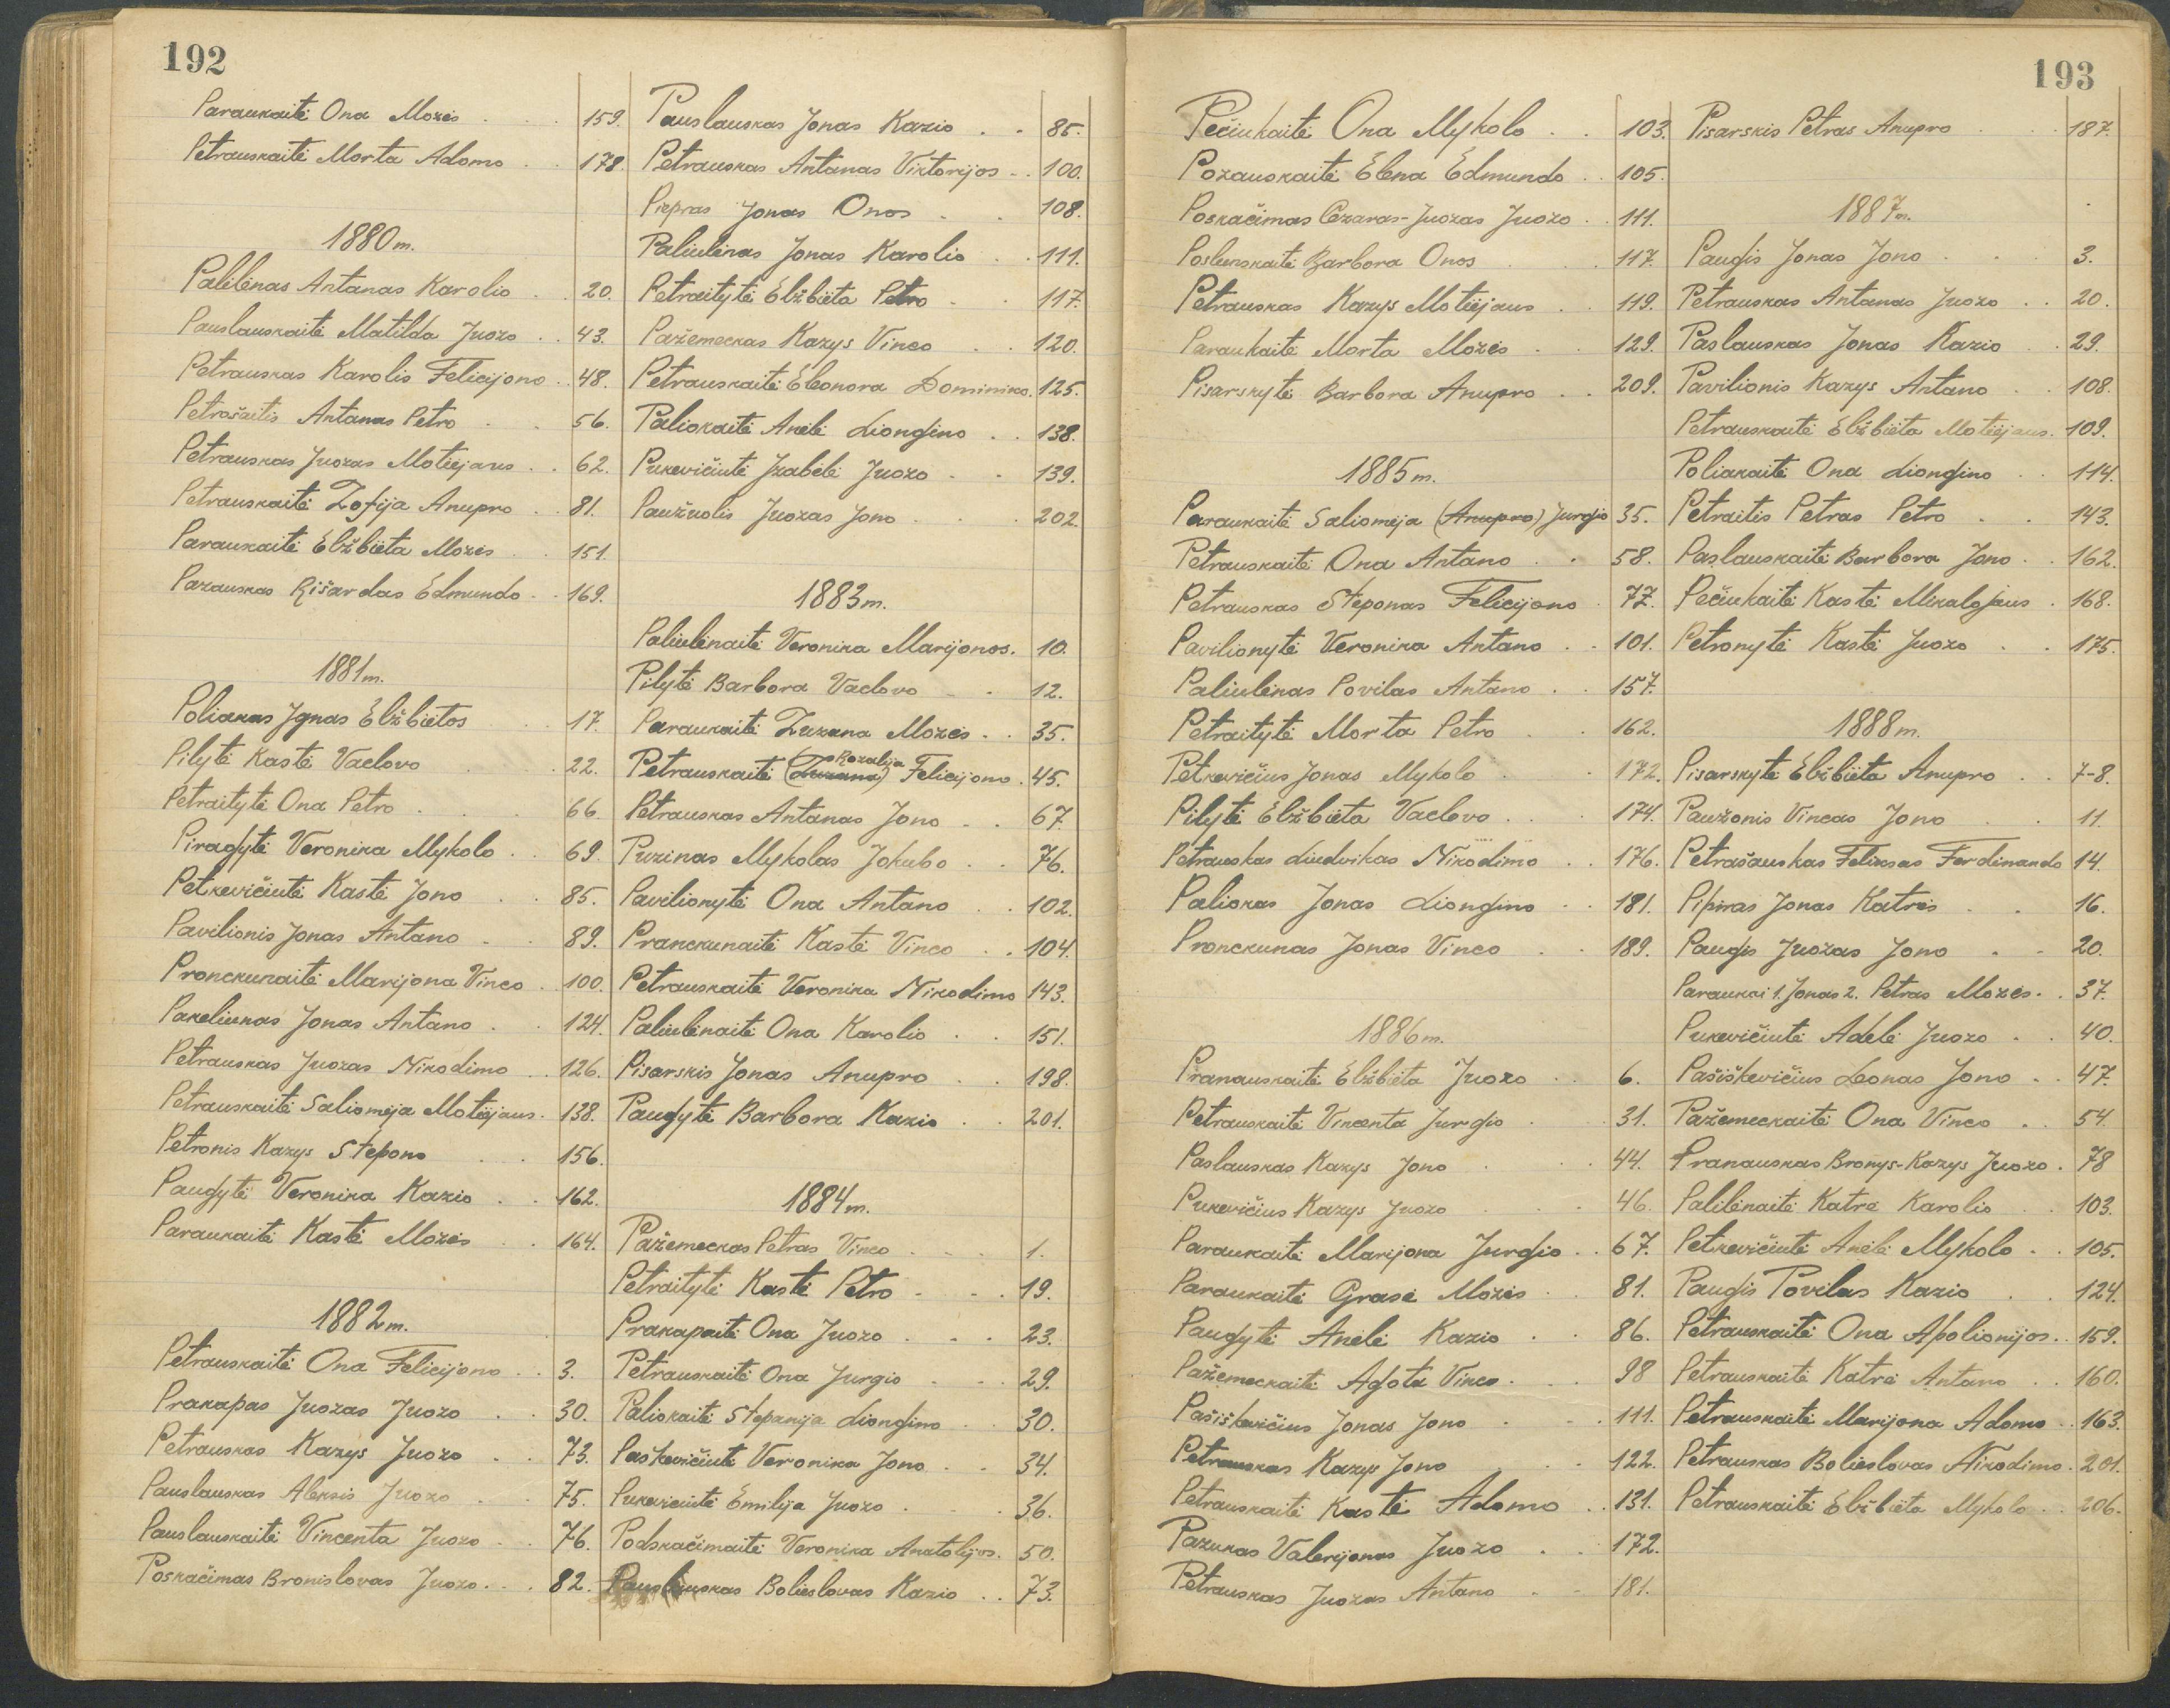 192
Paraukaitė Ona Mozės . . . 159.
Petrauskaitė Morta Adomo . . 178.
1880 m.
Palilėnas Antanas Karolio . . 20.
Pauslauskaitė Matilda Juozo . . 43.
Petrauskas Karolis Felicijono . . 48.
Petrošaitis Antanas Petro . . 56.
Petrauskas Juozas Motiejaus . . 62.
Petrauskaitė Zofija Anupro . . 81.
Paraukaitė Elžbieta Mozės . . 151.
Pazauskas Rišardas Edmundo . . 169.
1881 m.
Poliakas Ignas Elžbietos . . 17.
Pilytė Kastė Vaclovo . . 22.
Petraitytė Ona Petro . . . 66.
Piragytė Veronika Mykolo . . 69.
Petkevičiutė Kastė Jono . . 85.
Pavilionis Jonas Antano . . 89.
Pronckunaitė Marijona Vinco . 100.
Pakeliunas Jonas Antano . . 124.
Petrauskas Juozas Nikodimo . . 126.
Petrauskaitė Saliomėja Motiejaus . 138.
Petronis Kazys Stepono . . 156.
Paugytė Veronika Kazio . . 162.
Paraukaitė Kastė Mozės . . 164.
1882 m.
Petrauskaitė Ona Felicijono . . 3.
Prakapas Juozas Juozo . . 30.
Petrauskas Kazys Juozo . . 73.
Pauslauskas Aleksis Juozo . . 75.
Pauslauskaitė Vincenta Juozo . . 76.
Poskačimas Bronislovas Juozo . . . 82.
Pauslauskas Jonas Kazio . . 85.
Petrauskas Antanas Viktorijos . . 100.
Piepras Jonas Onos . . 108.
Paliulėnas Jonas Karolio . . 111.
Petraitytė Elžbieta Petro . . 117.
Pažemeckas Kazys Vinco . . 120.
Petrauskaitė Eleonora Dominiko. 125.
Paliokaitė Anelė Liongino . . 138.
Pukevičiutė Izabelė Juozo . . 139.
Paužuolis Juozas Jono . . . 202.
1883 m.
Paliulėnaitė Veronika Marijonos. 10.
Pilytė Barbora Vaclovo . . 12.
Paraukaitė Zuzana Mozės . . 35.
Petrauskaitė (Zuzana) Rozalija Felicijono . 45.
Petrauskas Antanas Jono . . 67.
Puzinas Mykolas Jokubo . . 76.
Pavilionytė Ona Antano . . 102.
Pranckunaitė Kastė Vinco . . 104.
Petrauskaitė Veronika Nikodimo 143.
Paliulėnaitė Ona Karolio . . 151.
Pisarskis Jonas Anupro . . 198.
Paugytė Barbora Kazio . . 201.
1884 m.
Pažemeckas Petras Vinco . . . 1.
Petraitytė Kastė Petro . . . 19.
Prakapaitė Ona Juozo . . . 23.
Petrauskaitė Ona Jurgio . . . 29.
Paliokaitė Stepanija Liongino . . 30.
Paškevičiutė Veronika Jono . . 34.
Pukevičiutė Emilija Juozo . . . 36.
Podskačimaitė Veronika Anatolijos. 50.
Pauslauskas Bolieslovas Kazio . . 73.
193
Pečiukaitė Ona Mykolo . . 103.
Pozauskaitė Elena Edmundo . . 105.
Poskačimas Cezaras-Juozas Juozo . . 111.
Poslunskaitė Barbora Onos . . 117.
Petrauskas Kazys Motiejaus . . 119.
Paraukaitė Morta Mozės . . 129.
Pisarskytė Barbora Anupro . . 209.
1885 m.
Paraukaitė Saliomėja (Anupro) Jurgio 35.
Petrauskaitė Ona Antano . . 58.
Petrauskas Steponas Felicijono . 77.
Pavilionytė Veronika Antano . . 101.
Paliulėnas Povilas Antano . . 157.
Petraitytė Morta Petro . . 162.
Petkevičius Jonas Mykolo . . 172.
Pilytė Elžbieta Vaclovo . . . 174.
Petrauskas Liudvikas Nikodimo . . 176.
Paliokas Jonas Liongino . . 181.
Pronckunas Jonas Vinco . . 189.
1886 m.
Pranauskaitė Elžbieta Juozo . . 6.
Petrauskaitė Vincenta Jurgio . . 31.
Paslauskas Kazys Jono . . 44.
Pukevičius Kazys Juozo . . . 46.
Paraukaitė Marijona Jurgio . . 67.
Paraukaitė Grasė Mozės . . 81.
Paugytė Anelė Kazio . . 86.
Pažemeckaitė Agota Vinco . . . 98
Pašiškevičius Jonas Jono . . . 111.
Petrauskas Kazys Jono . . 122.
Petrauskaitė Kastė Adomo . . 131.
Pazukas Valerijonas Juozo . . 172.
Petrauskas Juozas Antano . . 181.
Pisarskis Petras Anupro . . . 187.
1887 m.
Paugis Jonas Jono . . . 3.
Petrauskas Antanas Juozo . . 20.
Paslauskas Jonas Kazio . 29.
Pavilionis Kazys Antano . . 108.
Petrauskaitė Elžbieta Motiejaus . 109.
Poliakaitė Ona Liongino . . 114.
Petraitis Petras Petro . . 143.
Paslauskaitė Barbora Jono . . 162.
Pečiukaitė Kastė Mikalojaus . 168.
Petronytė Kastė Juozo . . 175.
1888 m.
Pisarskytė Elžbieta Anupro . . 7-8.
Paužonis Vincas Jono . . 11.
Petrašauskas Feliksas Ferdinando 14.
Pipiras Jonas Katrės . . 16.
Paugis Juozas Jono . . 20.
Paraukai 1. Jonas 2. Petras Mozės . . 37.
Pukevičiutė Adelė Juozo . . 40.
Pašiškevičius Leonas Jono . . 47.
Pažemeckaitė Ona Vinco . . 54.
Pranauskas Bronys-Kazys Juozo . 78
Palilėnaitė Katrė Karolio . . 103.
Petkevičiutė Anelė Mykolo . . 105.
Paugis Povilas Kazio . . 124.
Petrauskaitė Ona Apolionijos . . 159.
Petrauskaitė Katrė Antano . . 160.
Petrauskaitė Marijona Adomo . . 163.
Petrauskas Bolieslovas Nikodimo . 201.
Petrauskaitė Elžbieta Mykolo . . 206.